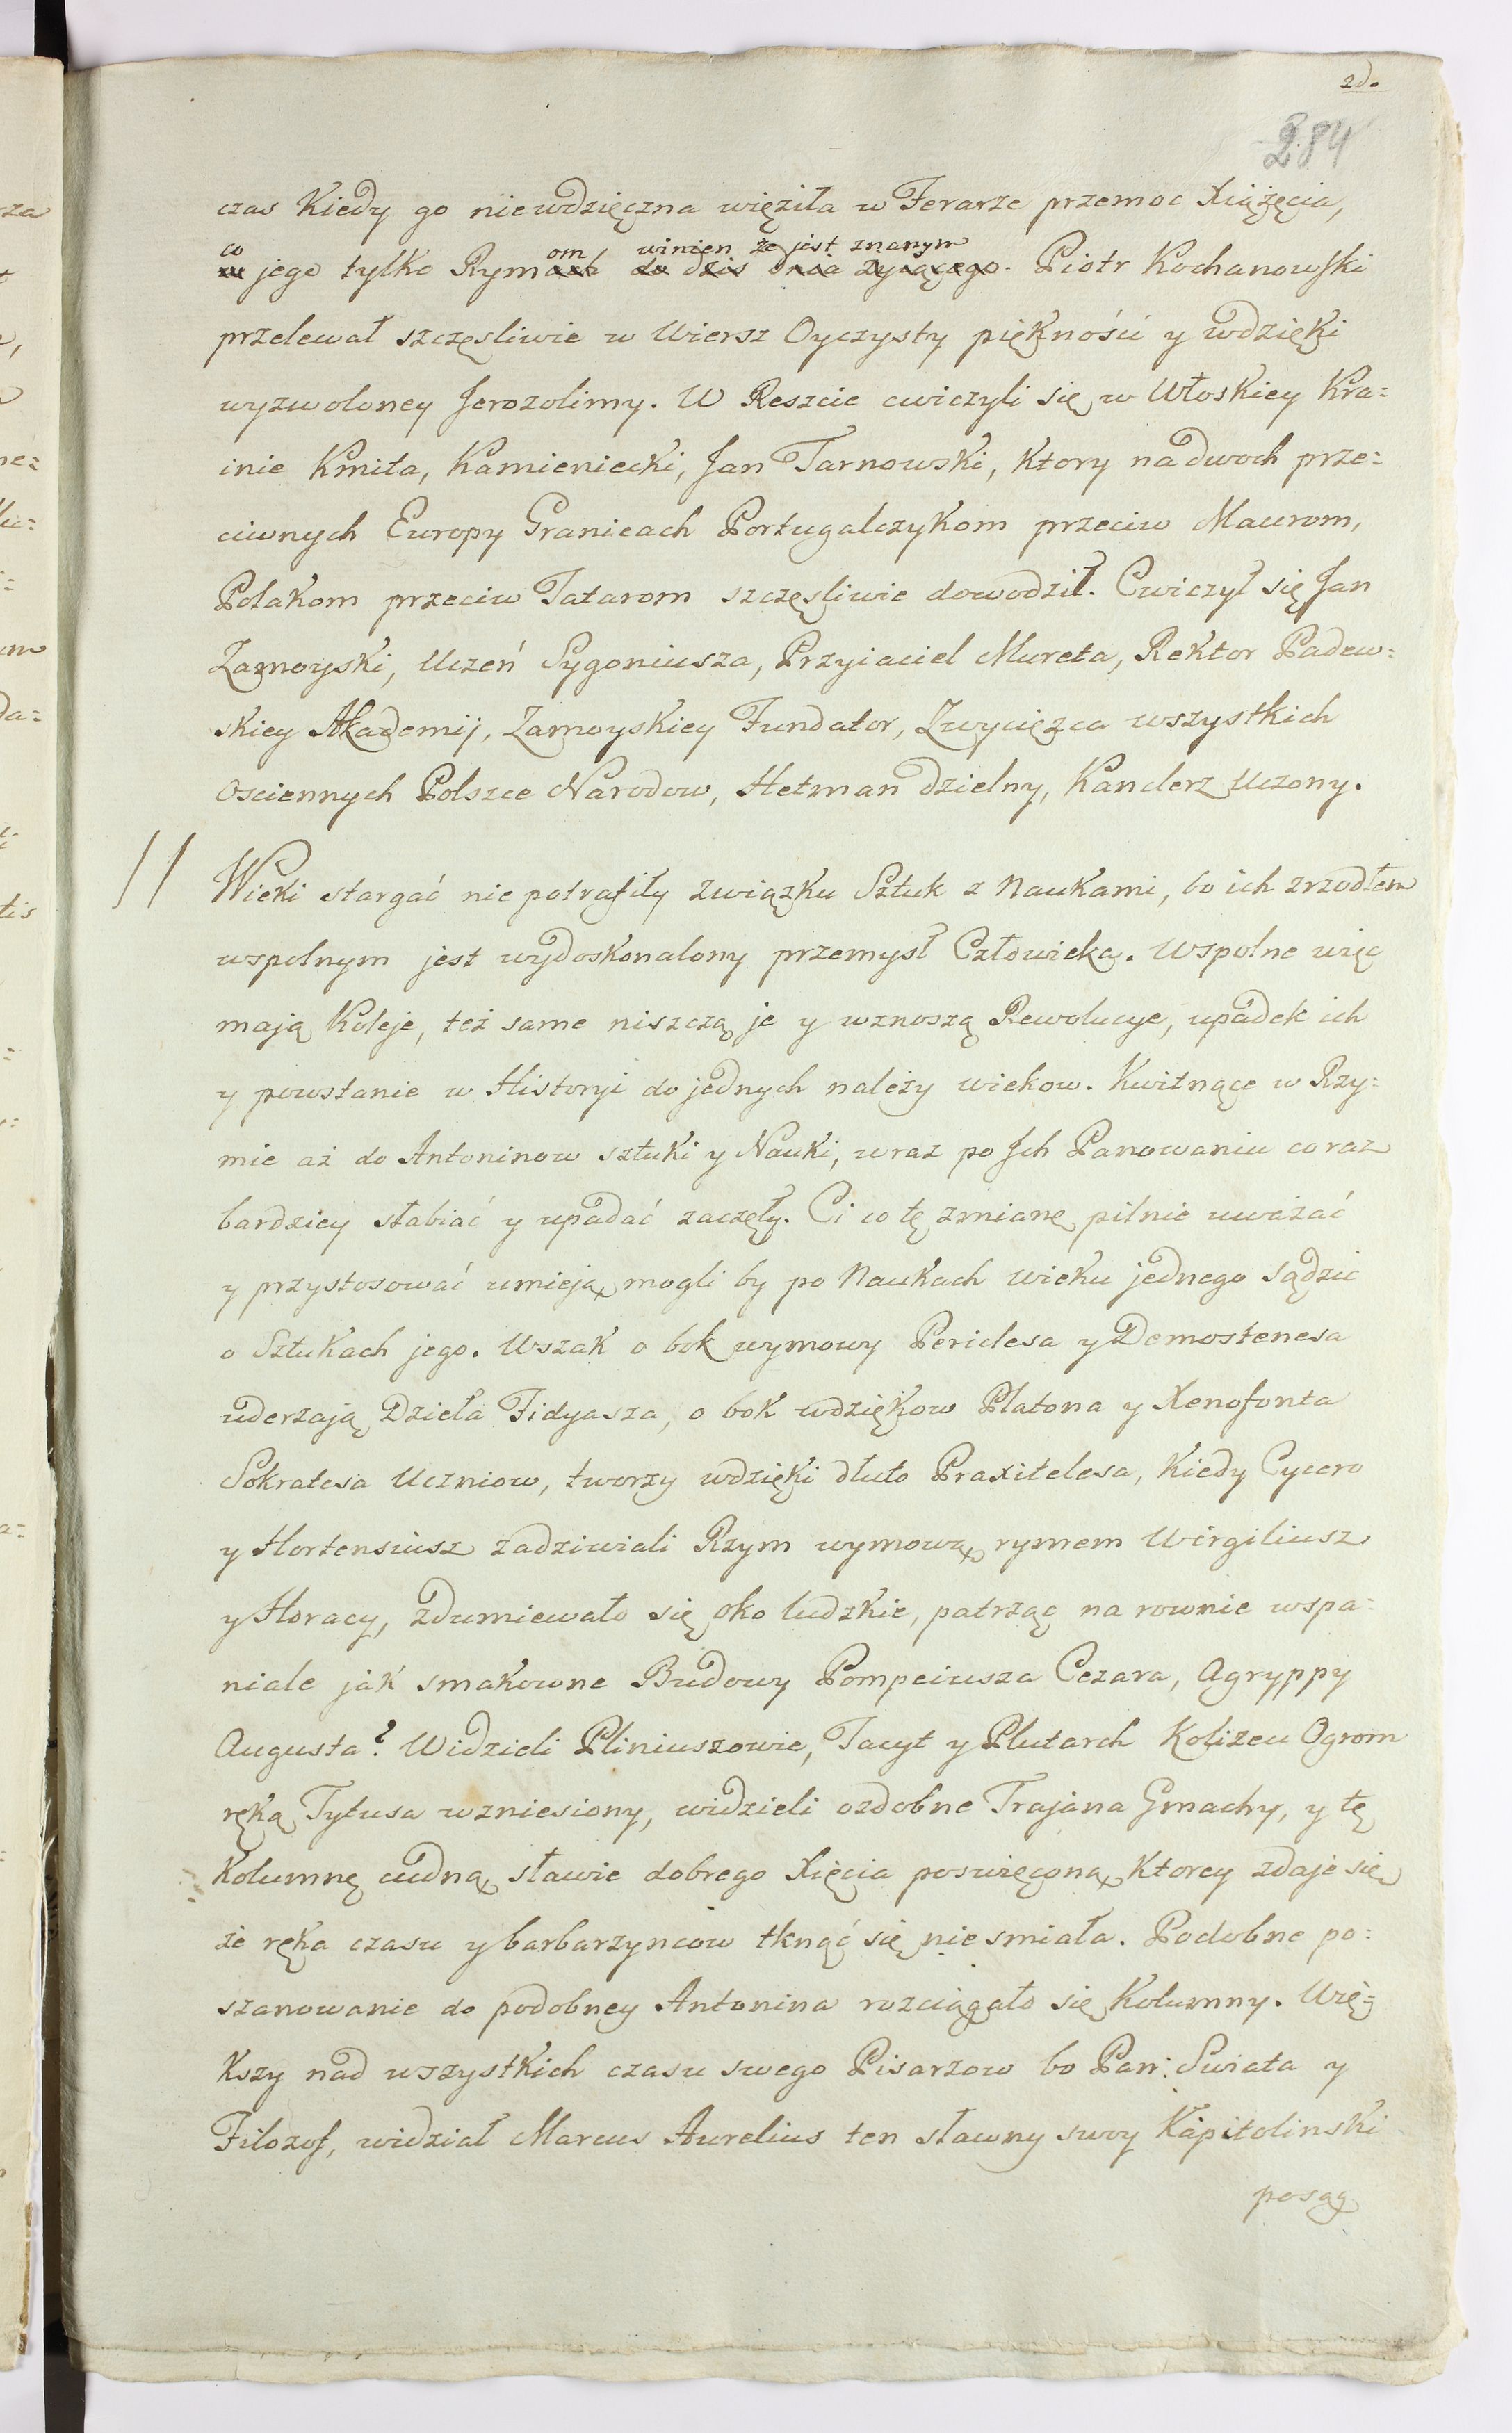 2do
284
czas Kiedy go niewdzięczna więziła w Ferarze przemoc Xiążęcia,
co om winien że jest znanym
w jego tylko Rymach do dzis dnia żyiącego. Piotr Kochanowski
przelewał szczęsliwie w Wiersz Oyczysty pięknośći y wdzięki
wyzwoloney Jerozolimy. W Reszcie cwiczyli się w Włoskiey Kra=
inie Kmita, Kamieniecki, Jan Tarnowski, Ktory na dwoch prze=
ciwnych Europy Granicach Portugalczykom przeciw Maurom,
Polakom przeciw Tatarom szczęsliwie dowodził. Cwiczył się Jan
Zamoyski, Uczeń Sygoniusza, Przyiaciel Mureta, Rektor Padew=
skiey Akademij, Zamoyskiey Fundator, Zwycięzca wszystkich
Osciennych Polszce Narodow, Hetman dzielny, Kanclerz Uczony.
// Wieki stargać nie potrafiły związku Sztuk z Naukami, bo ich zrzodłem
wspolnym jest wydoskonalony przemysł Człowieka. Wspolne więc
mają Koleje, też same niszczą je y wznoszą Rewolucye, upadek ich
y powstanie w Historyi do jednych należy wiekow. Kwitnące w Rzy=
mie aż do Antoninow sztuki y Nauki, wraz po Ich Panowaniu co raz
bardziey słabiać y upadać zaczęły. Ci co tę zmianę pilnie uważać
y przystosować umieją, mogli by po Naukach wieku jednego sądzic
o Sztukach jego. Wszak o bok wymowy Periclesa y Demostenesa
uderzają Dzieła Fidyasza, o bok wdzięków Platona y Xenofonta
Sokratesa Uczniow, tworzy wdzięki dłuto Praxitelesa, Kiedy Cycero
y Hortensiusz zadziwiali Rzym wymową, rymem Wirgiliusz
y Horacy, zdumiewało się oko ludzkie, patrząc na rownie wspa=
niale jak smakowne Budowy Pompeiusza Cezara, Agryppy
Augusta? Widzieli Pliniuszowie, Tacyt y Plutarch Kolizeu Ogrom
ręką Tytusa wzniesiony, widzieli ozdobne Trajana Gmachy, y tę
Kolumnę cudną, sławie dobrego Xięcia poswięconą, Ktorey zdaje się
że ręka czasu y barbarzyncow tknąć się nie smiała. Podobne po=
szanowanie do podobney Antonina rozciągało się Kolumny. Wię=
kszy nad wszystkich czasu swego Pisarzow bo Pan: Swiata y
Filozof, widział Marcus Aurelius ten sławny swoy Kapitolinski
posąg